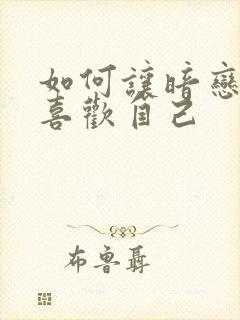 如何讓暗戀
喜歡自己
布魯聶